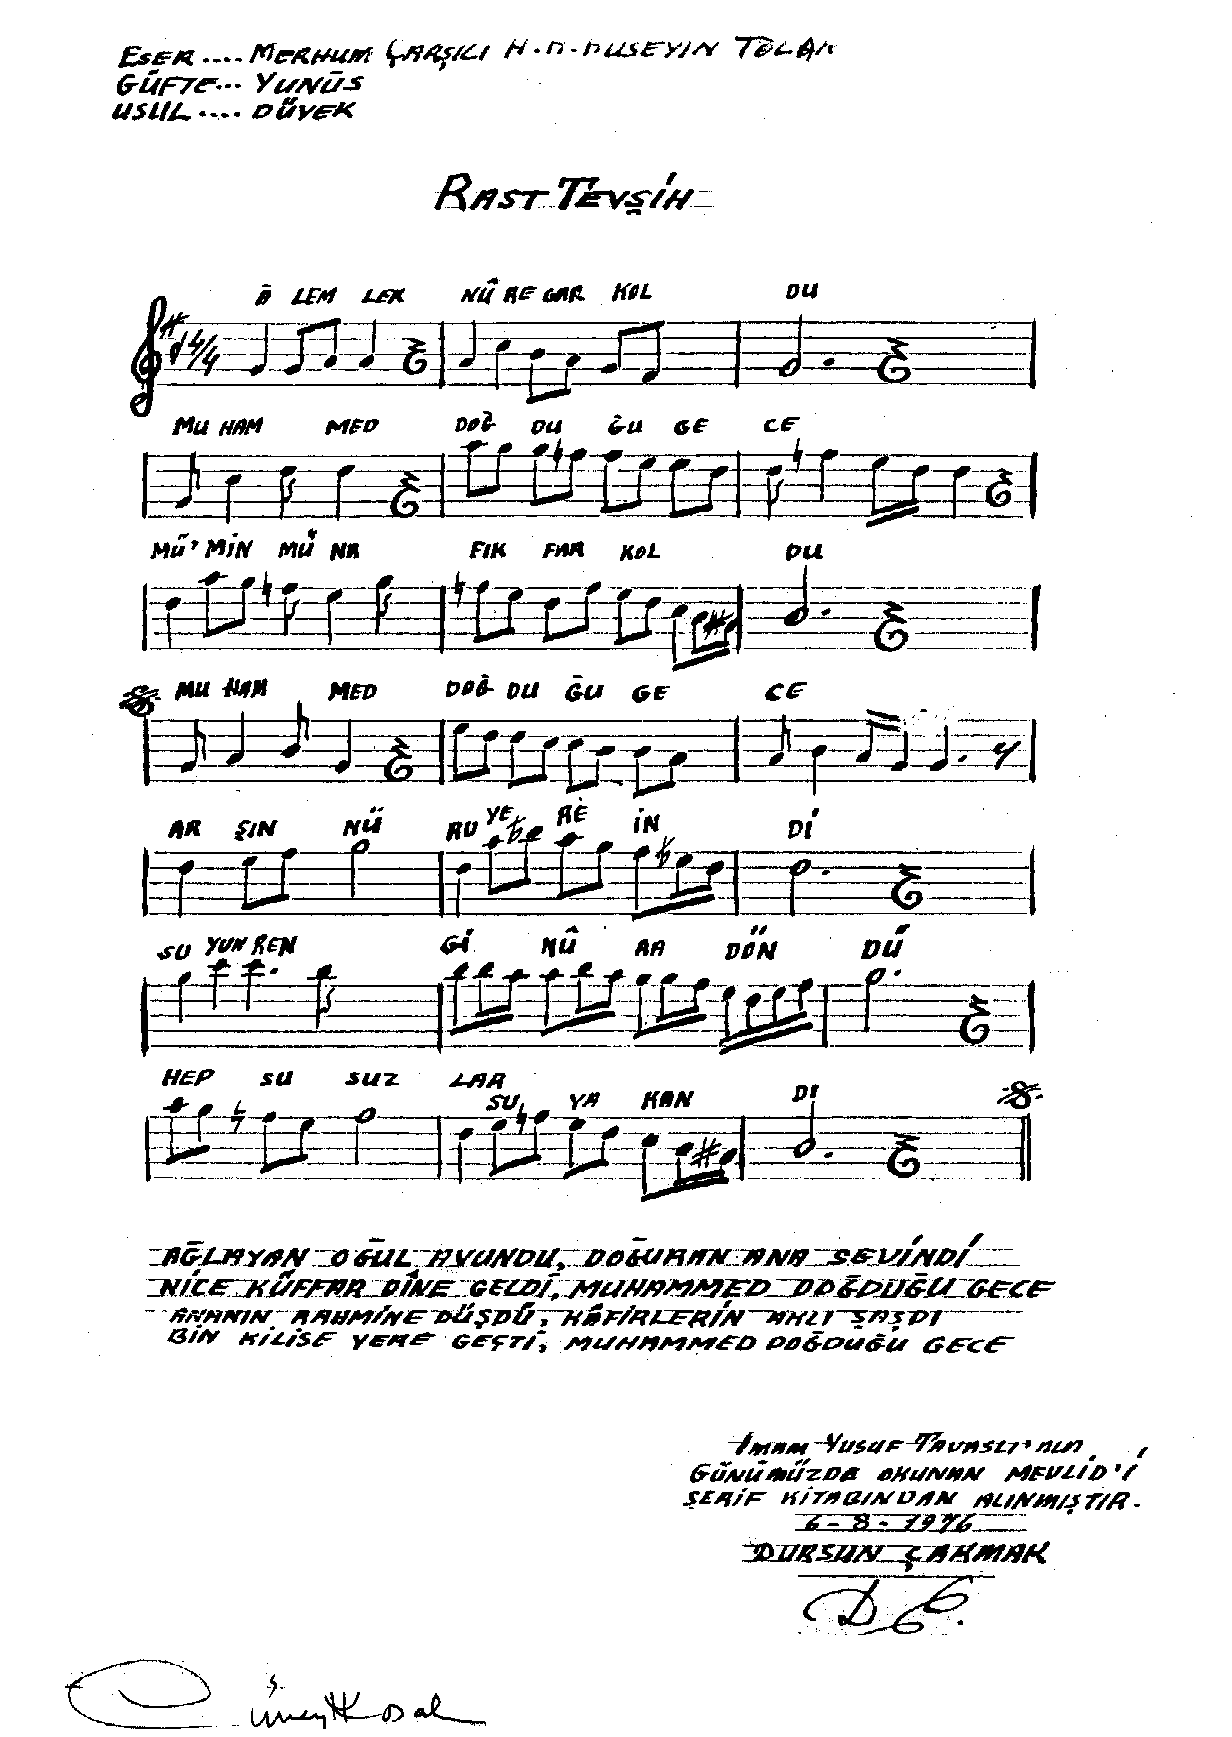 ESER .... MERHUM ÇARŞILI H.D. HUSEYIN TOLAN
GÜFTE... YUNÛS
USUL .... DÜYEK
RAST TEVŞİH
Â LEM LER NÛ RE GAR KOL DU
4/4
MU HAM MED DOĞ DU ĞU GE CE
MÜ' MİN MÜ NA FIK FAR KOL DU
MU HAM MED DOĞ DU ĞU GE CE
AR ŞIN NÜ RU YE RE İN Dİ
SU YUN REN Gİ NÛ RA DÖN DÜ
HEP SU SUZ LAR SU YA KAN DI
AĞLAYAN OĞUL AVUNDU, DOĞURAN ANA SEVİNDİ
NİCE KÜFFAR DÎNE GELDİ, MUHAMMED DOĞDUĞU GECE
ANANIN RAHMİNE DÜŞDÜ, KÂFİRLERİN AKLI ŞAŞDI
BİN KİLİSE YERE GEÇTİ, MUHAMMED DOĞDUĞU GECE
İMAM YUSUF TAVASLI'NIN
GÜNÜMÜZDA OKUNAN MEVLİD'İ
ŞERİF KİTABINDAN ALINMIŞTIR.
6-8-1976
DURSUN ÇAKMAK